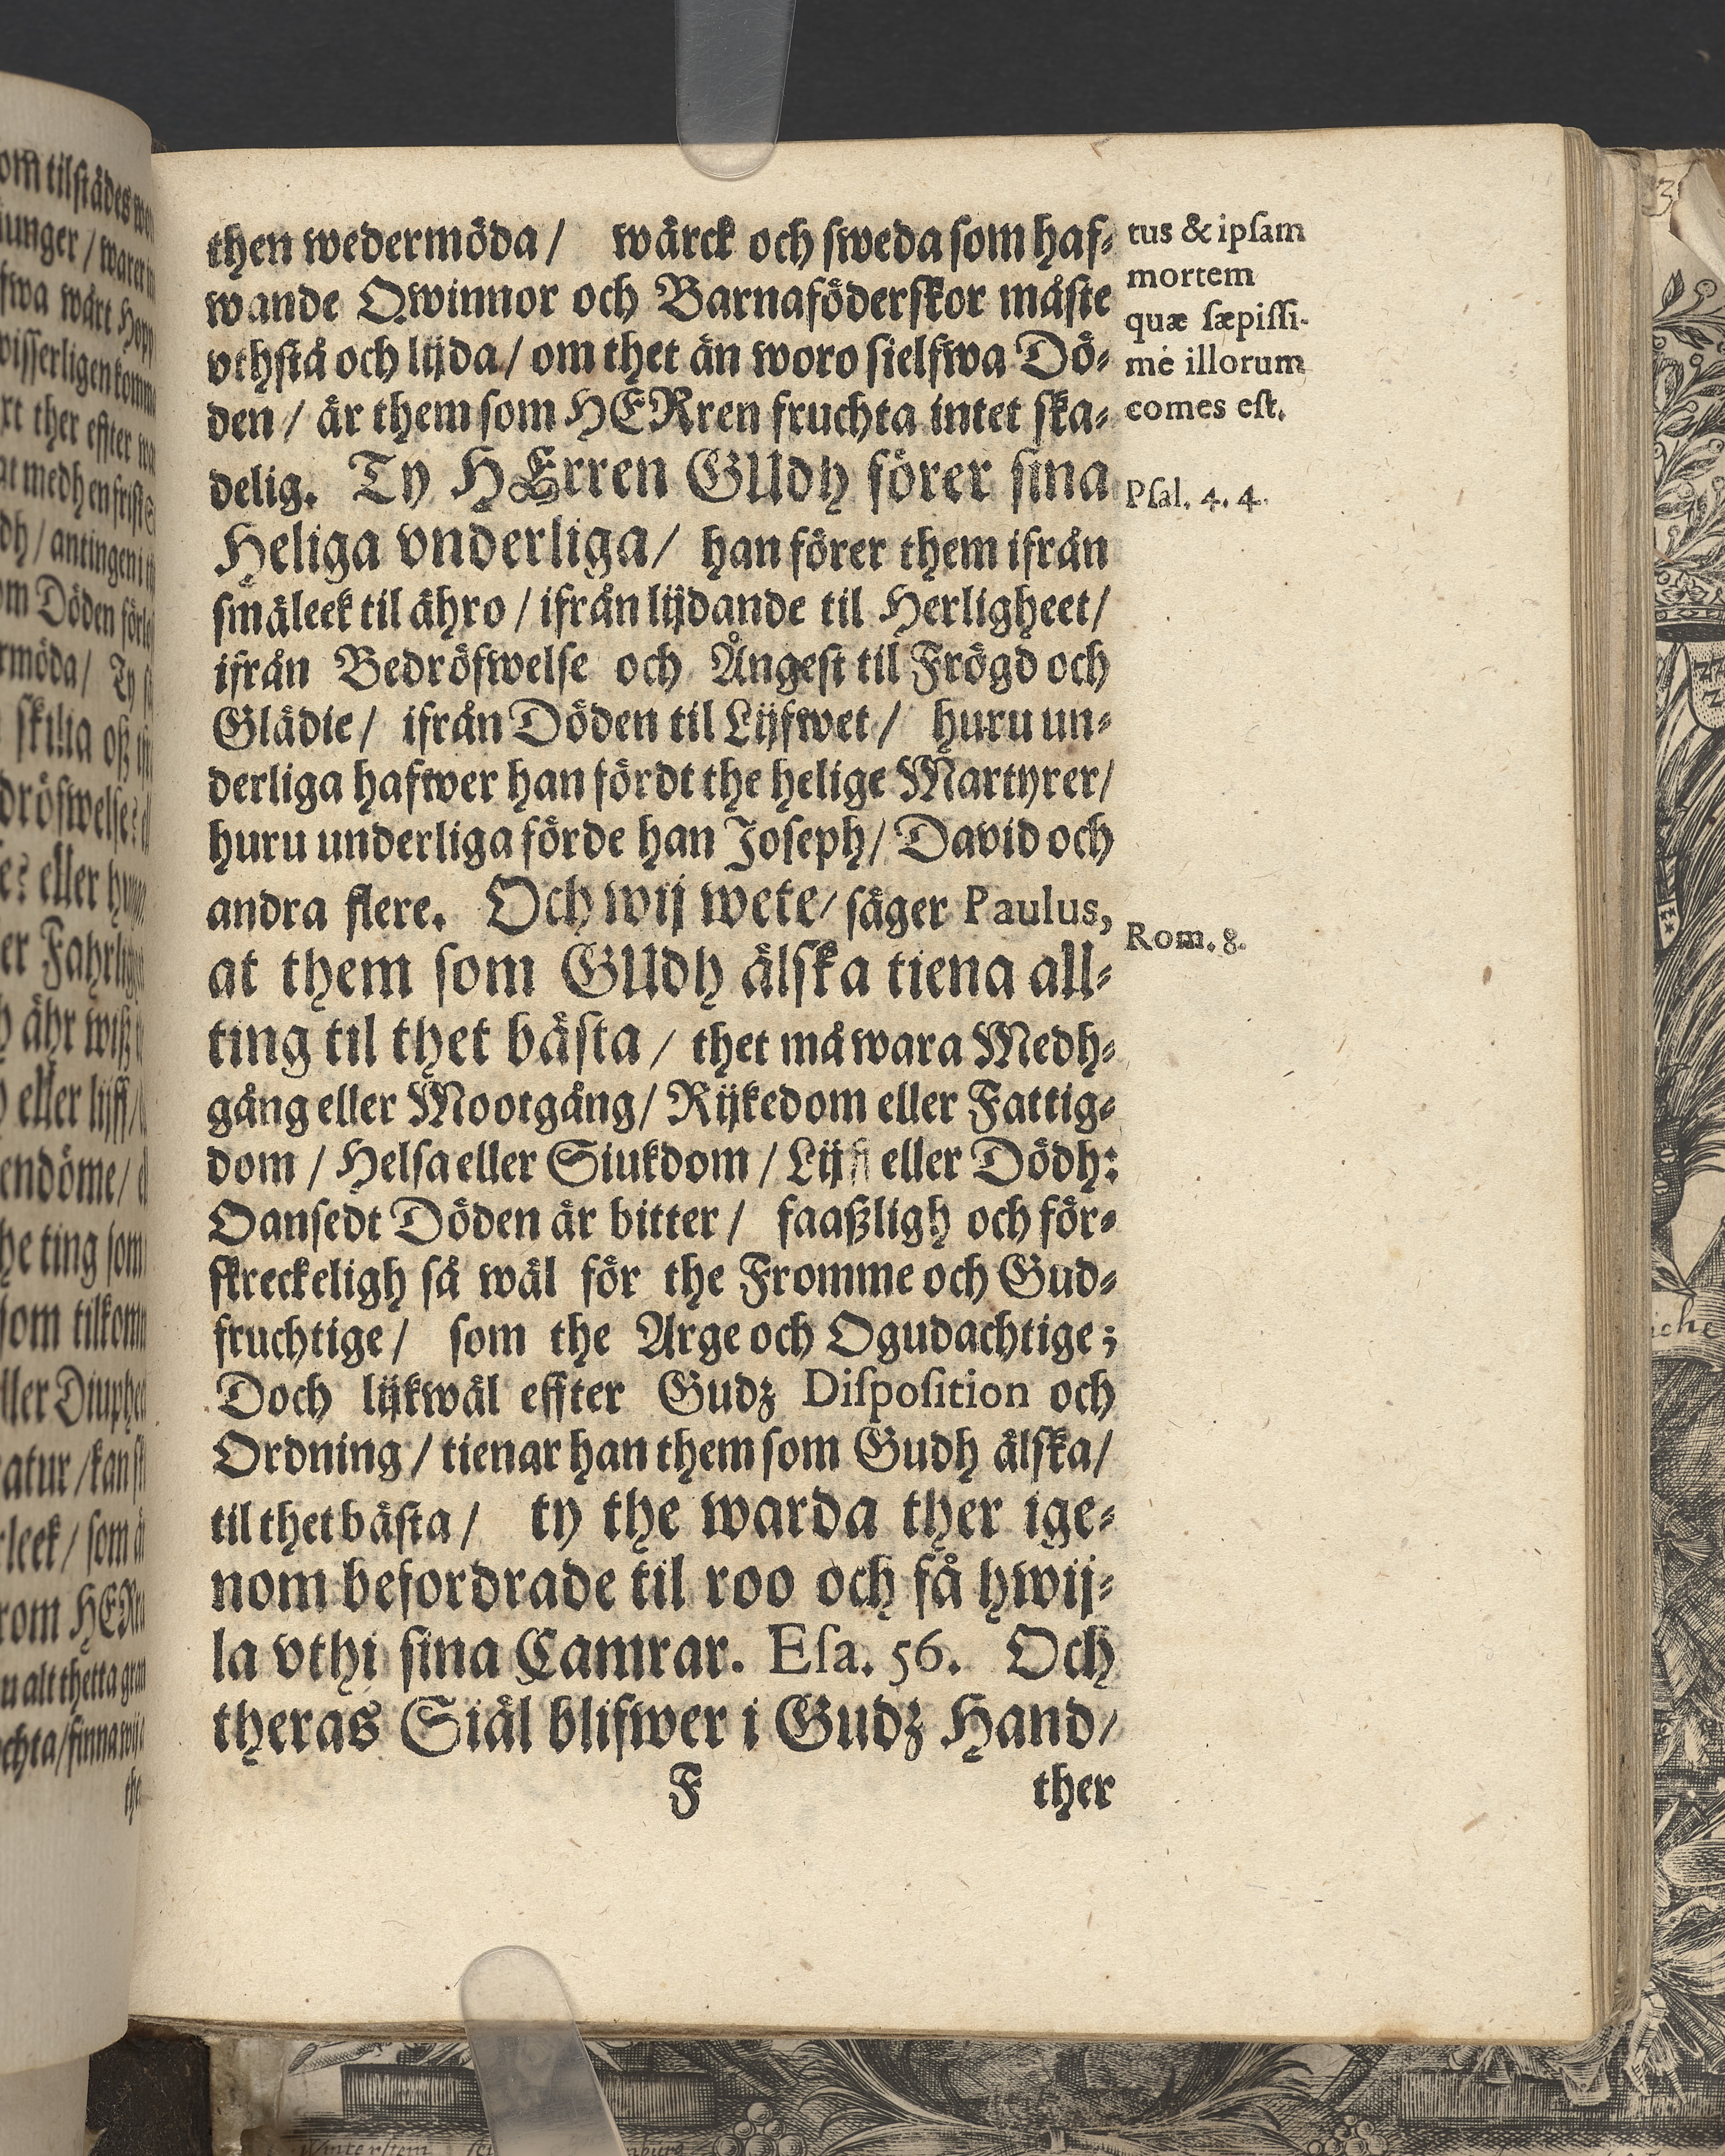 then wedermöda / wärck och sweda som haf-
wande Qwinnor och Barnaföderskor måste
vthstå och lijda / om thet än woro sielfwa Dö-
den / är them som HERren fruchta intet ska-
delig. Ty HErren GUdh förer sina
Heliga vnderliga / han förer them ifrån
smäleek til ähro / ifrån lijdande til Herligheet /
ifrån Bedröfwelse och Ångest til Frögd och
Glädie / ifrån Döden til Lijfwet / huru un-
derliga hafwer han fördt the helige Martyrer /
huru underliga förde han Joseph / David och
andra flere. Och wij wete / säger Paulus,
at them som GUdh älska tiena all-
ting til thet bästa / thet må wara Medh-
gång eller Mootgång / Rijkedom eller Fattig-
dom / Helsa eller Siukdom / Lijff eller Dödh:
Oansedt Döden är bitter / faaßligh och för-
skreckeligh så wäl för the Fromme och Gud-
fruchtige / som the Arge och Ogudachtige;
Doch lijkwäl effter Gudz Disposition och
Ordning / tienar han them som Gudh älska /
til thet bästa / ty the warda ther ige-
nom befordrade til roo och få hwij-
la vthi sina Camrar. Esa. 56. Och
theras Siäl blifwer i Gudz Hand /
F ther
tus & ipsam
mortem
quæ sæpissi-
mè illorum
comes est.
Psal. 4. 4.
Rom. 8.